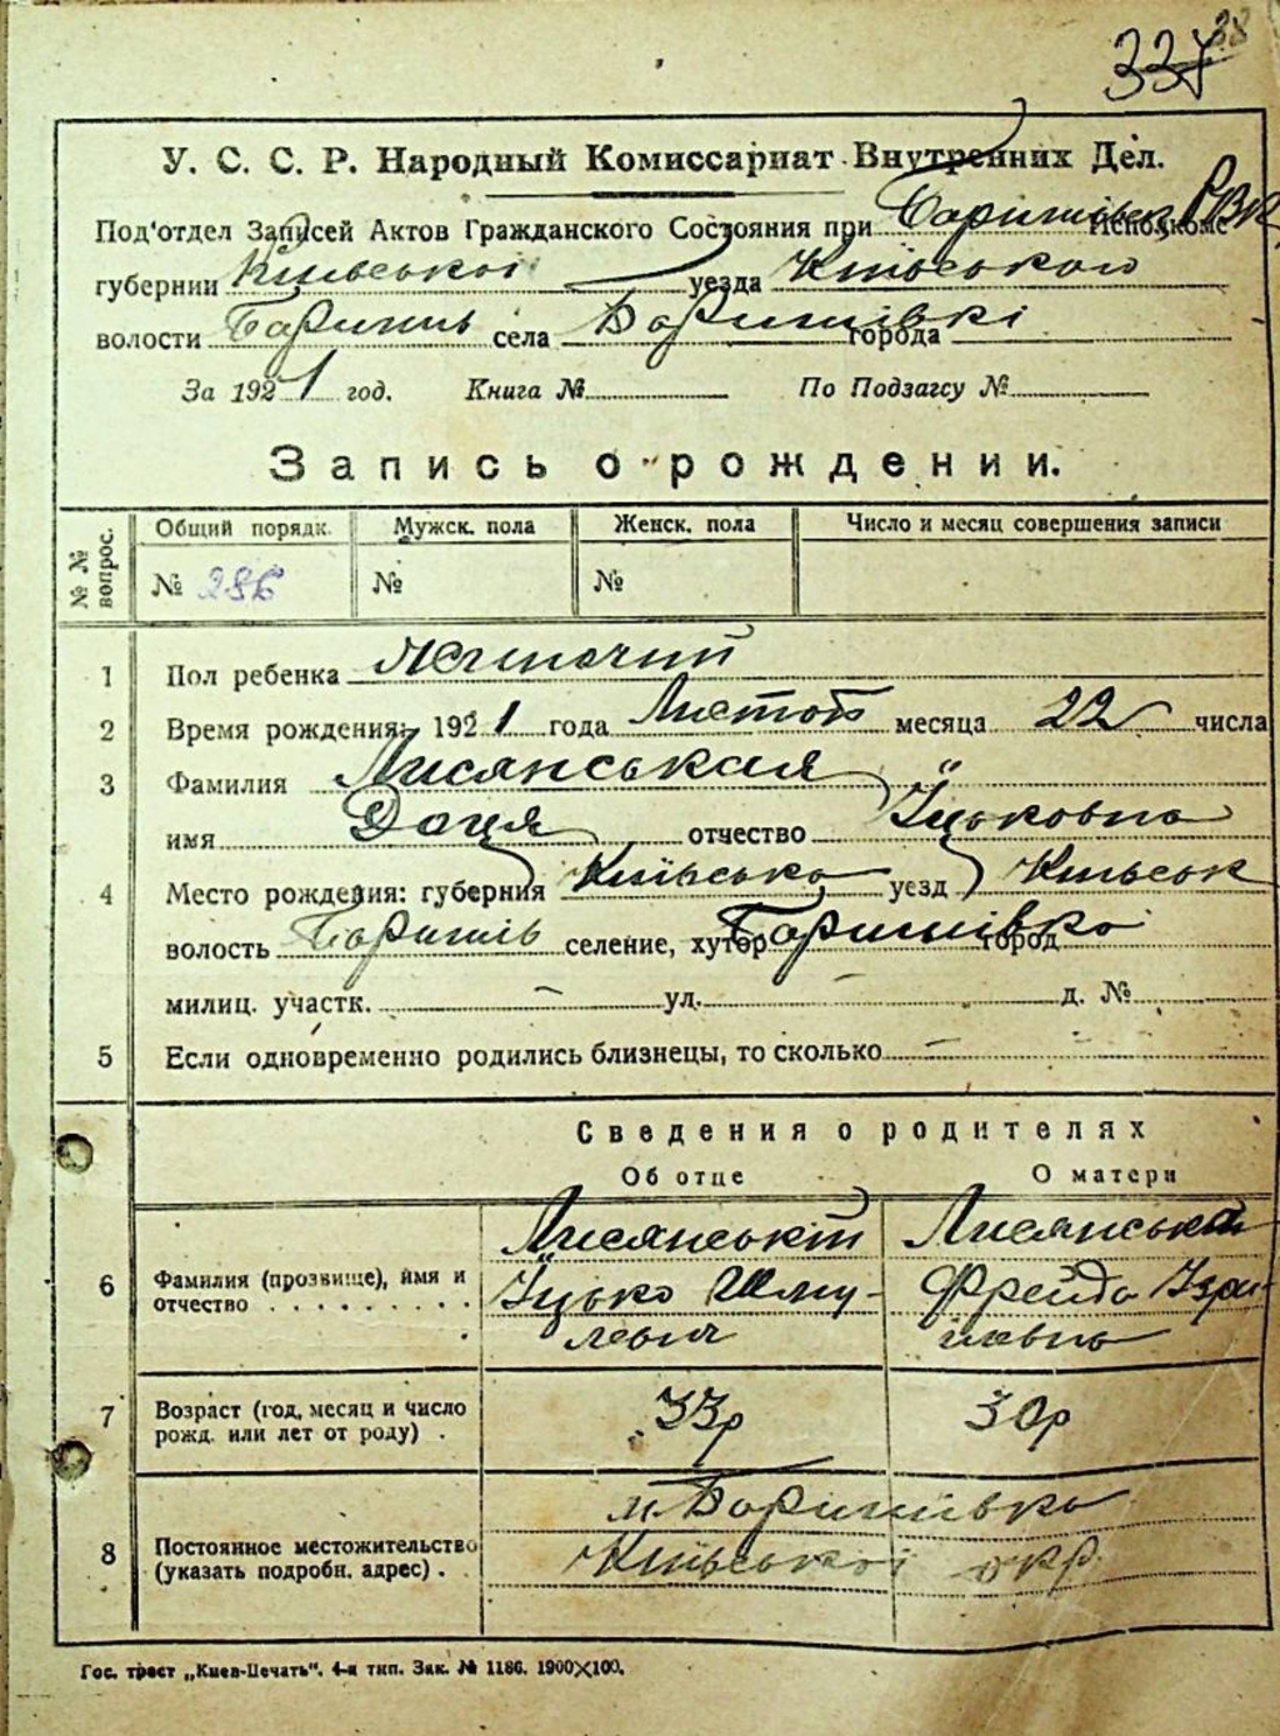 38
337
У. С. С. Р. Народный Комиссариат Внутренних Дел.
Под'отдел Записей Актов Гражданского Состояния при Баришівськ РВК Исполкоме
губернии Київської уезда Київського
волости Баришів села Баришівкі города
За 1921 год. Книга № По Подзагсу №
Запись о рождении.
№ № вопрос. Общий порядк. Мужск. пола Женск. пола Число и месяц совершения записи
№ 286 № №
1 Пол ребенка Жіночий
2 Время рождения: 1921 года Листоп месяца 22 числа
3 Фамилия Лисянськая
имя Доця отчество Іцьковна
4 Место рождения: губерния Київсько уезд Київськ
волость Баришів селение, хутор Баришівка город
милиц. участк. ул. д. №
5 Если одновременно родились близнецы, то сколько
Сведения о родителях
Об отце О матери
Лисянський Лисянська
6 Фамилия (прозвище), имя и отчество Іцько Шму- Фрейда Ізра-
левич ілевна
7 Возраст (год, месяц и число рожд. или лет от роду) . 33р 30р
м. Баришівка
8 Постоянное местожительство (указать подробн. адрес) . Київської окр.
Гос. трест „Киев-Печать". 4-я тип. Зак. № 1186. 1900×100.